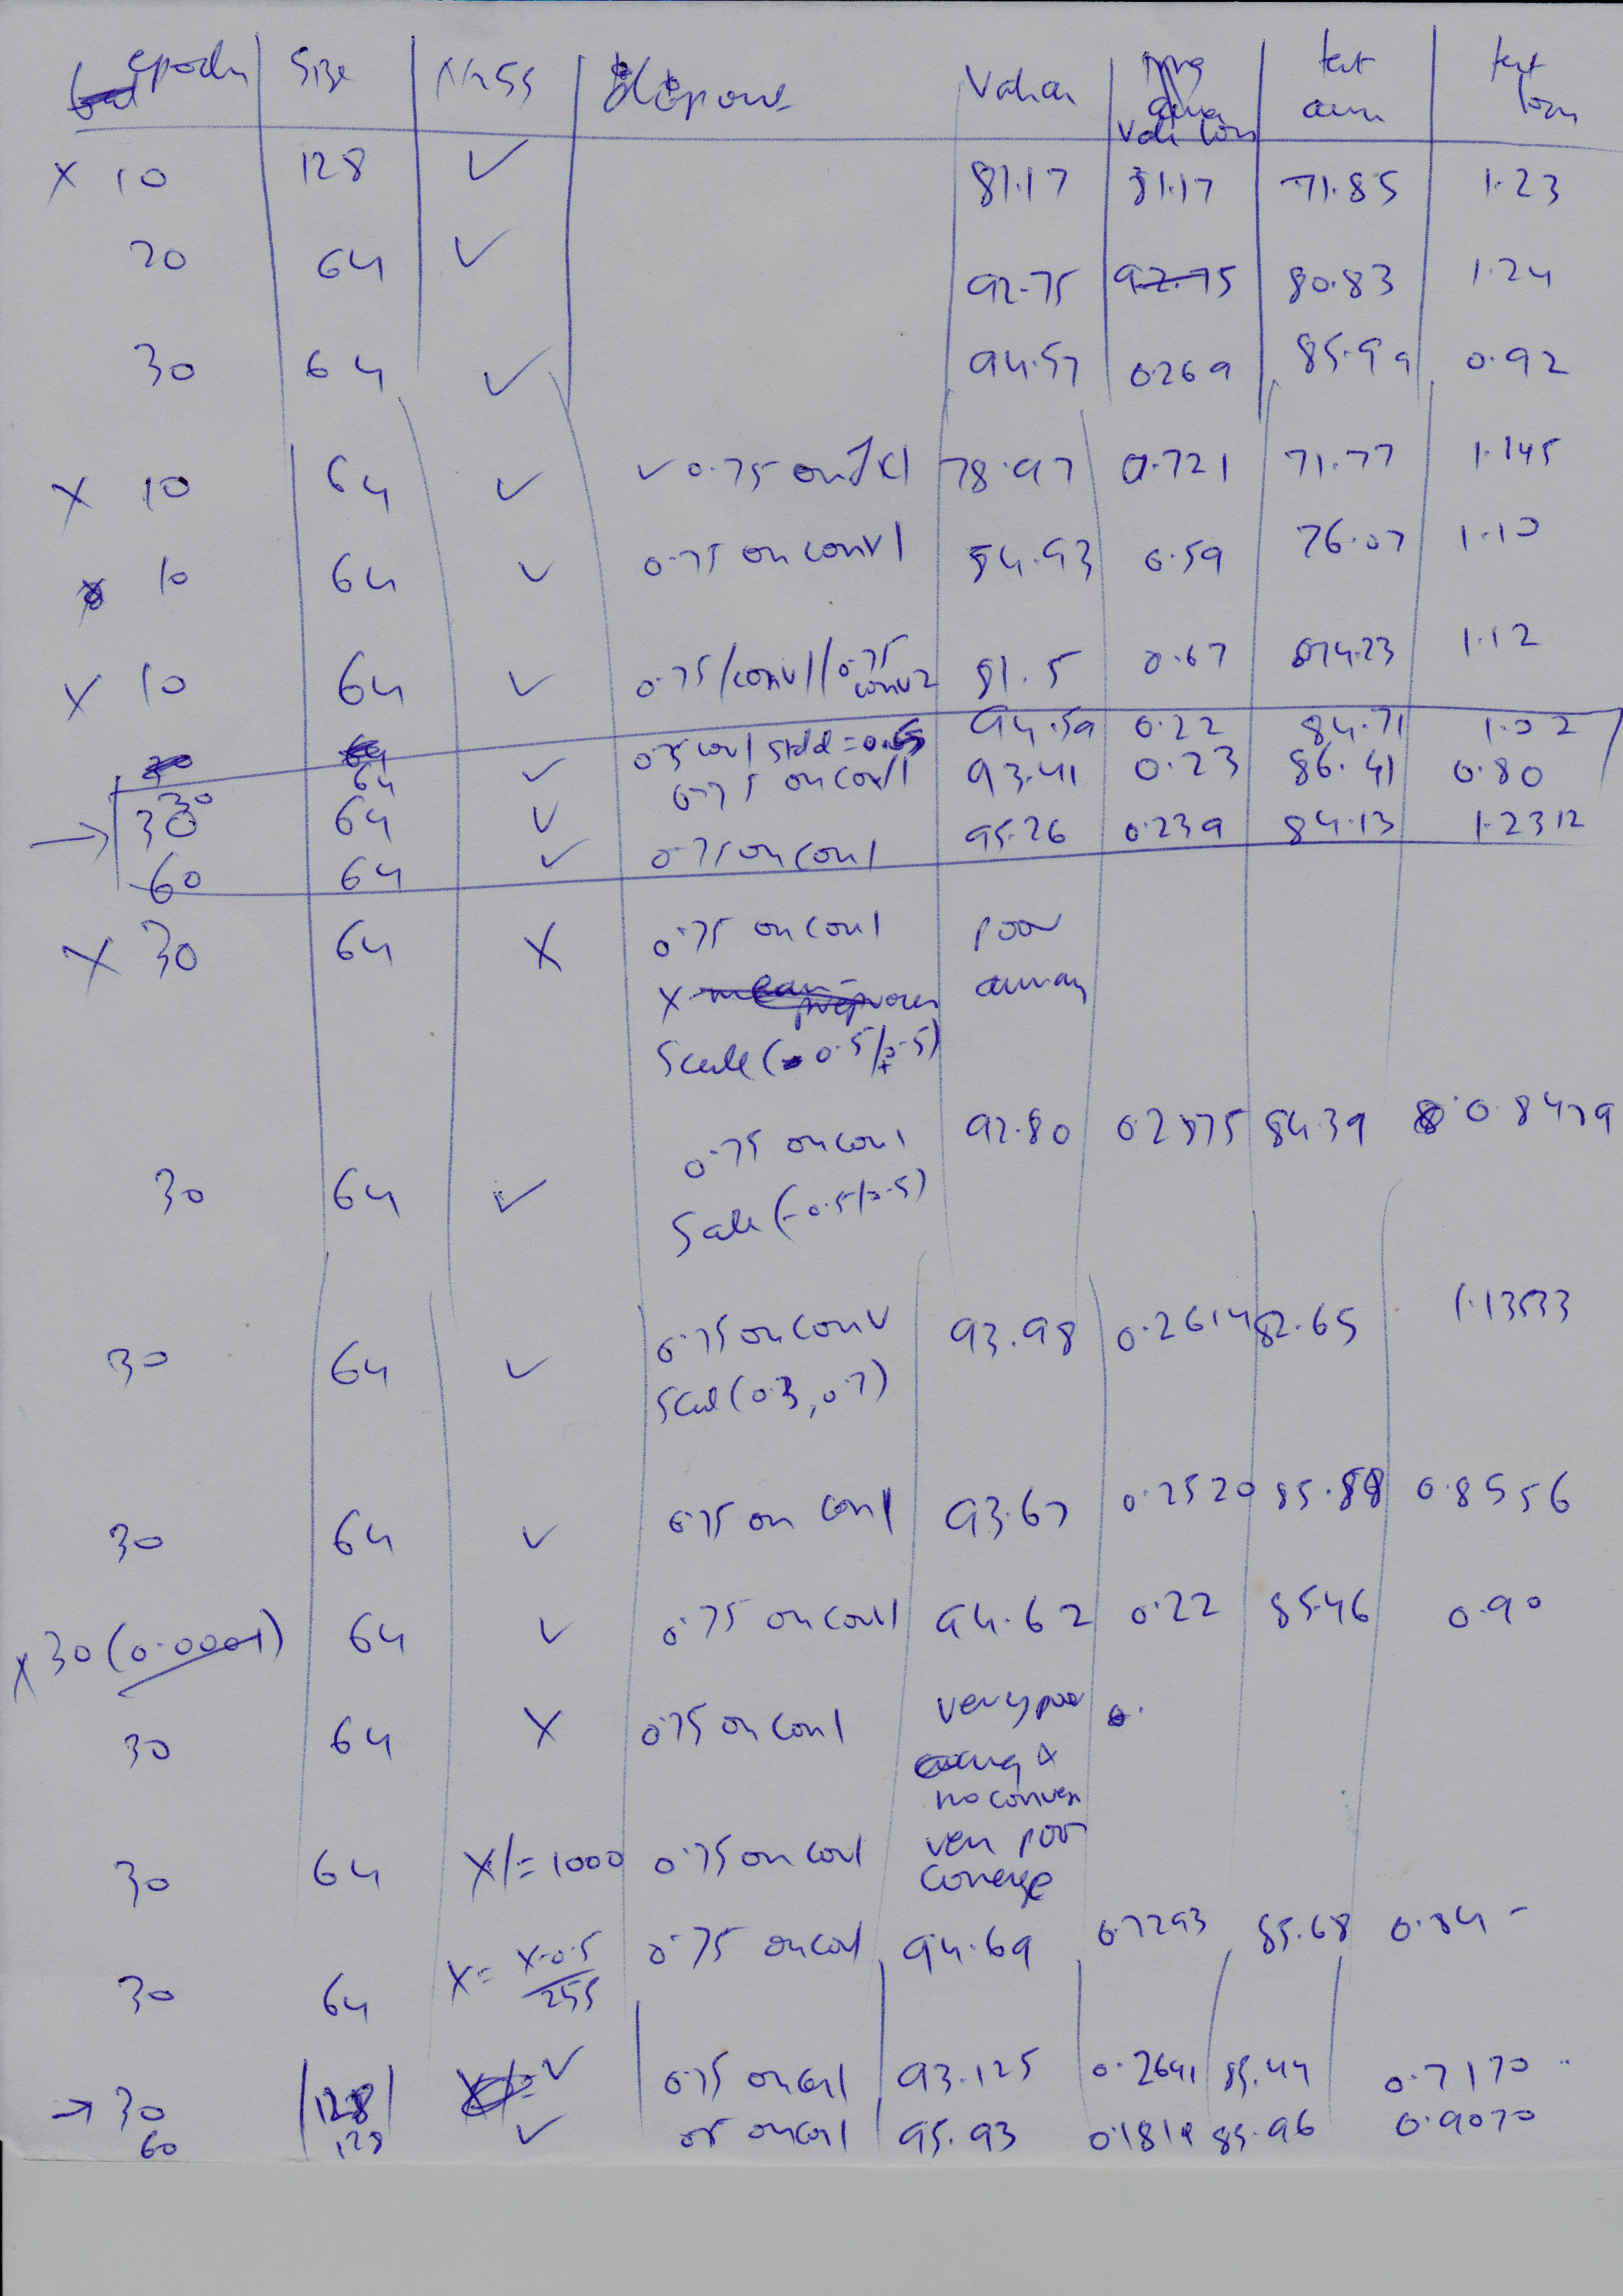 epochs Size X/255 dropout Val acc Val loss test accu test loss
X 10 128 ✓ 81.17 81.17 71.85 1.23
20 64 ✓ 92.75 92.75 80.83 1.24
30 64 ✓ 94.57 0.269 85.99 0.92
X 10 64 ✓ ✓ 0.75 on 78.97 0.721 71.77 1.145
10 64 ✓ 0.75 on conv1 84.93 0.59 76.07 1.10
X 10 64 ✓ 0.75/conv1/0.75 conv2 81.5 0.67 74.23 1.12
30 64 ✓ 0.75 conv1 94.59 0.22 84.71 1.02
→ 30 64 ✓ 0.75 on conv1 93.41 0.23 86.41 0.80
60 64 ✓ 0.75 on conv1 95.26 0.239 84.13 1.2312
X 30 64 X 0.75 on conv1 poor
X
Scale (-0.5/+.5)
0.75 on conv1 92.80 0.2875 84.39 0.8479
30 64 ✓
Scale (-0.5/0.5)
30 64 ✓ 0.75 on conv 93.98 0.2614 82.65 1.13533
Scal (0.3, 0.7)
30 64 ✓ 0.75 on conv1 93.67 0.2520 85.88 0.8556
X 30 (0.0001) 64 ✓ 0.75 on conv1 94.62 0.22 85.46 0.90
30 64 X 0.75 on conv1 very poor
no conver
30 64 X/=1000 0.75 on conv1 very poor
converge
30 64 X = X-0.5 / 255 0.75 on conv1 94.69 0.7293 85.68 0.84 -
→ 30 128 ✓ 0.75 on conv1 93.125 0.2641 85.44 0.7170
60 128 ✓ on conv1 95.93 0.1819 85.96 0.9070